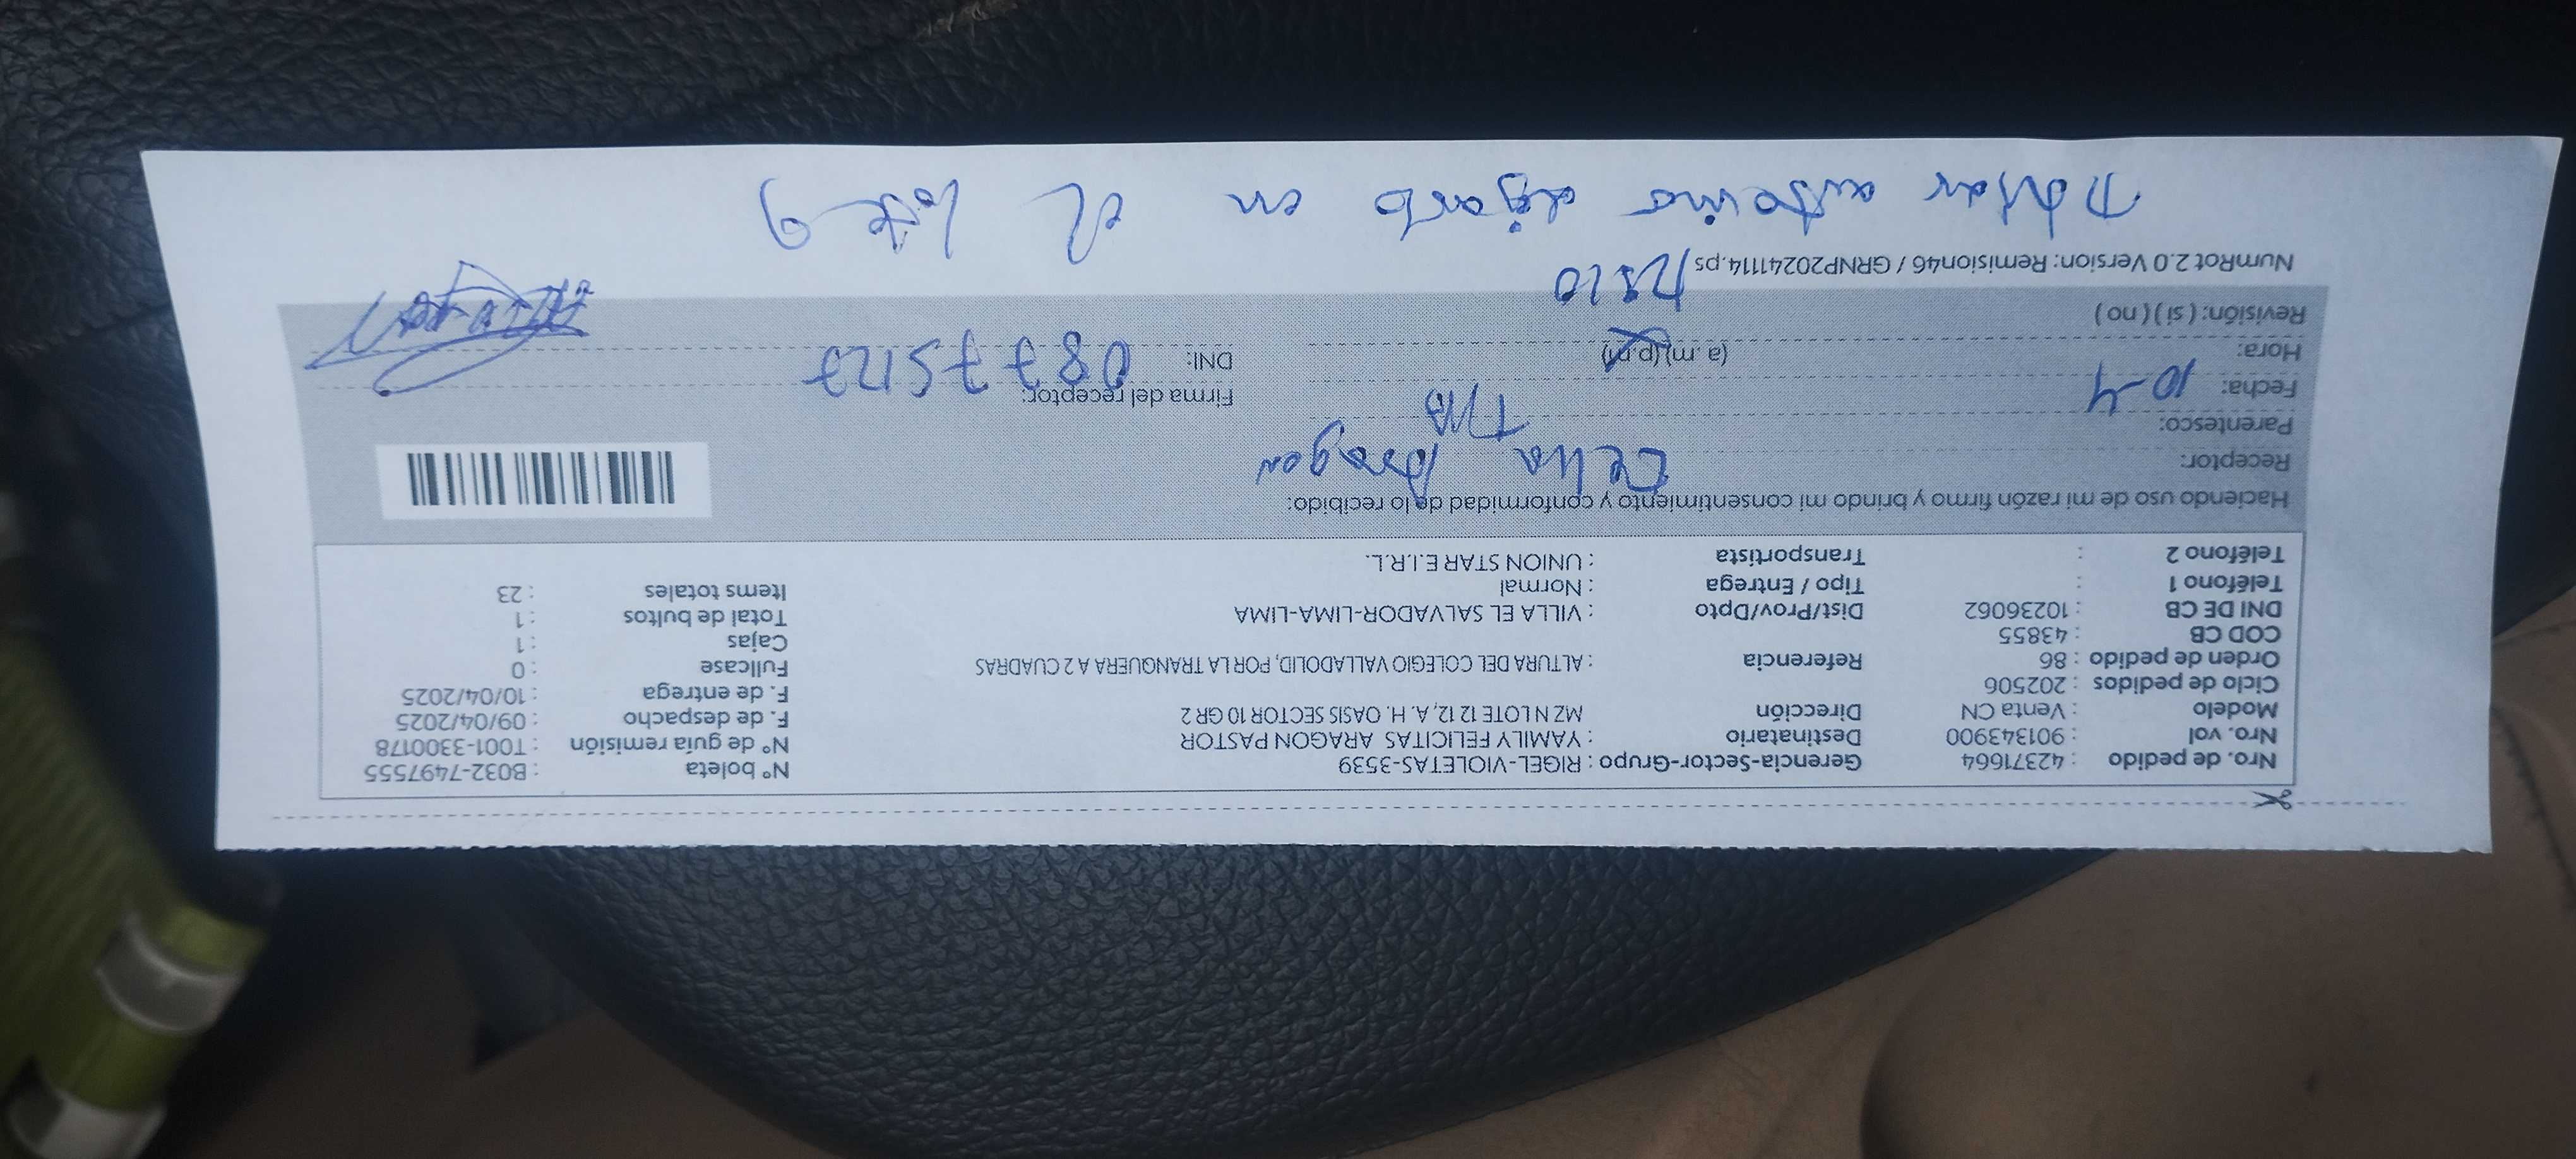 Nro. de pedido : 42371664 Gerencia-Sector-Grupo : RIGEL-VIOLETAS-3539 N° boleta : B032-7497555
Nro. vol : 901343900 Destinatario : YAMILY FELICITAS ARAGON PASTOR N° de guía remisión : T001-3300178
Modelo : Venta CN Dirección MZ N LOTE 12 12, A. H. OASIS SECTOR 10 GR 2 F. de despacho : 09/04/2025
Ciclo de pedidos : 202506 F. de entrega : 10/04/2025
Orden de pedido : 86 Referencia : ALTURA DEL COLEGIO VALLADOLID, POR LA TRANQUERA A 2 CUADRAS Fullcase : 0
COD CB : 43855 Cajas : 1
DNI DE CB : 10236062 Dist/Prov/Dpto : VILLA EL SALVADOR-LIMA-LIMA Total de bultos : 1
Teléfono 1 : Tipo / Entrega : Normal Items totales : 23
Teléfono 2 : Transportista : UNION STAR E.I.R.L.
Haciendo uso de mi razón firmo y brindo mi consentimiento y conformidad de lo recibido:
Receptor: Celia Aragon
Parentesco: TIA
Fecha: 10-4 Firma del receptor:
Hora: (a.m) (p.m) DNI: 08775127
Revisión: ( si ) ( no )
NumRot 2.0 Version: Remision46 / GRNP20241114.ps
titular autoriza dejarlo en el lote 9